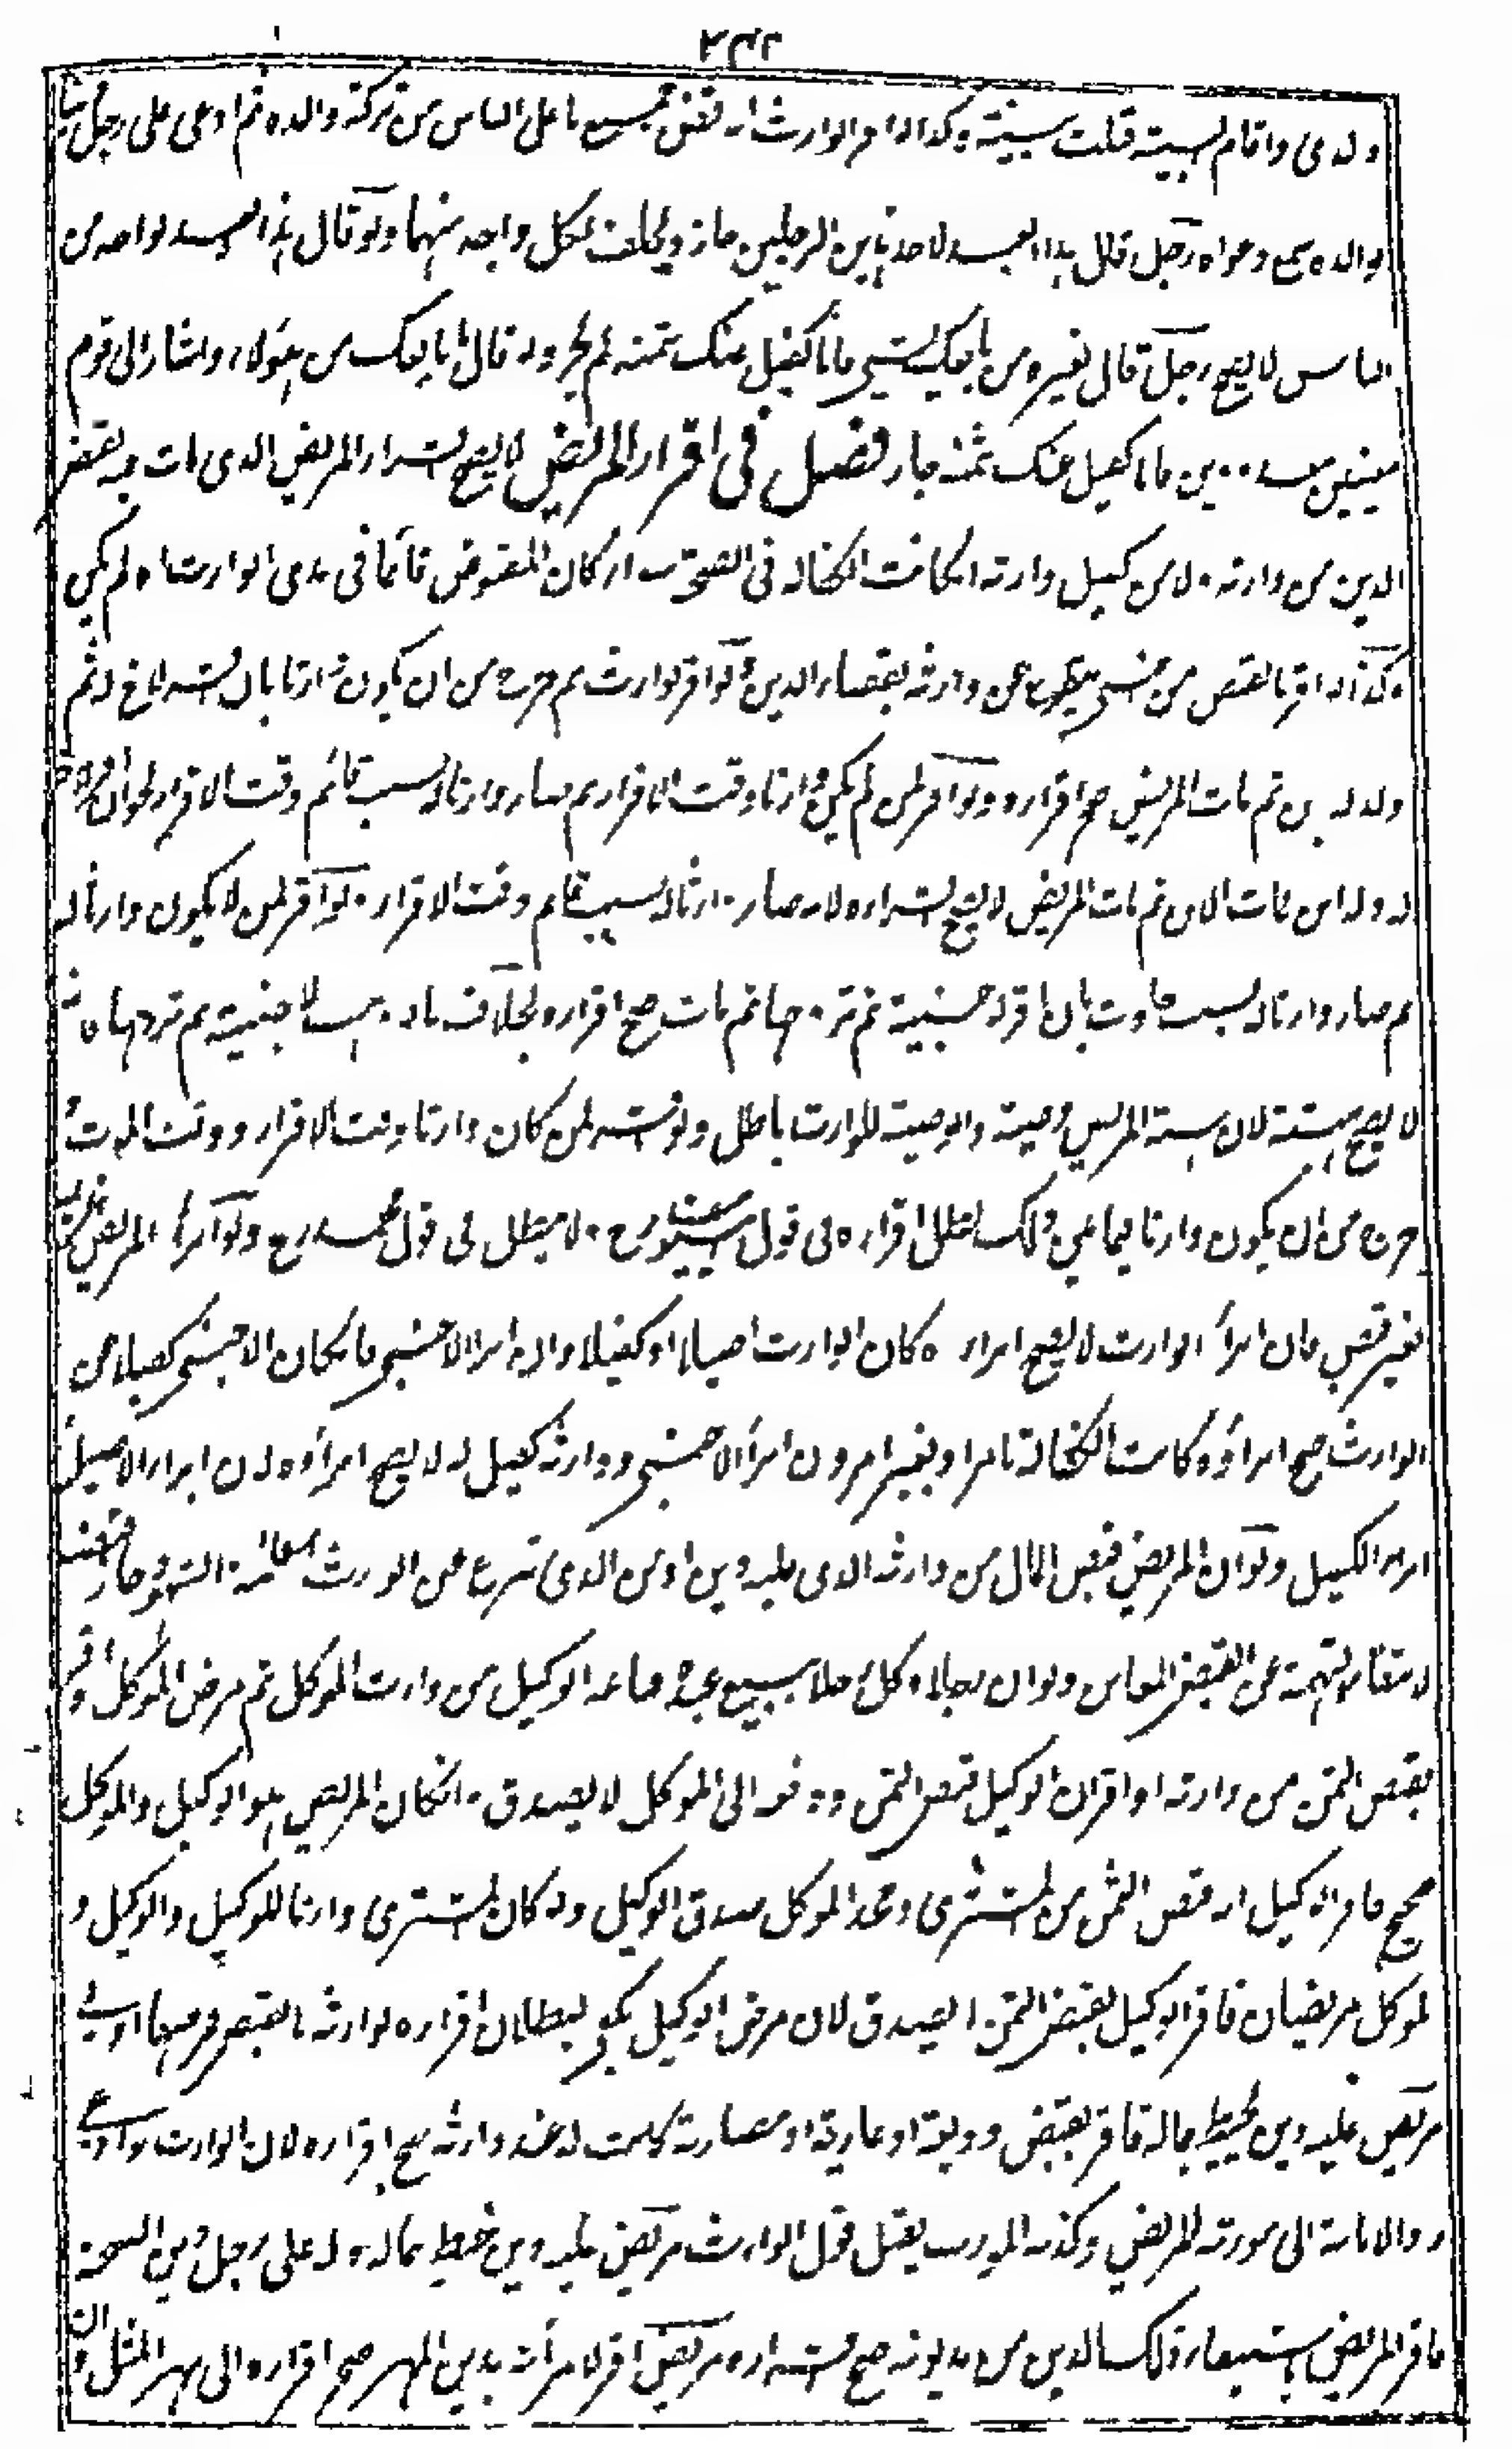 ولدى واقام البينة قبلت بينته وكذا اذا اقر الوارث انه قبض جميع ما على الناس من تركة والده ثم ادعى على رجل دينا
لوالده يسمع دعواه رجل قال هذا العبد لاحد هذين الرجلين جاز ويحلف لكل واحد منهما ولو قال هذا العبد لواحد من
الناس لا يصح رجل قال لغيره من بايعك بشيء فانا كفيل عنك بثمنه لم يجز ولو قال ان بايعك من هؤلاء واشار الى قوم
معينين فانا كفيل عنك بثمنه جاز فصل فى اقرار المريض لا يصح اقرار المريض الذى مات فيه بقبض
الدين من وارثه ولا من كفيل وارثه انكانت الكفالة فى الصحة ان كان المقبوض قائما فى يدى الوارث او لم يكن
وكذا اذا اقر بالقبض من اجنبي تطوع عن وارثه بقضاء الدين ولو اقر لوارث ثم خرج من ان يكون وارثا بان اقر لاخ له ثم
ولد له ابن ثم مات المريض صح اقراره ولو اقر لمن لم يكن وارثا وقت الاقرار ثم صار وارثا له بسبب قائم وقت الاقرار نحو ان اقر لاخ
له وله ابن فمات الابن ثم مات المريض لا يصح اقراره لانه صار وارثا له بسبب قائم وقت الاقرار ولو اقر لمن لا يكون وارثا له
ثم صار وارثا له بسبب حادث بان اقر لاجنبية ثم تزوجها ثم مات صح اقراره بخلاف ما لو وهب لاجنبية ثم تزوجها فانه
لا يصح هبته لان هبة المريض وصية والوصية للوارث باطل ولو اقر لمن كان وارثا وقت الاقرار ووقت الموت و
خرج من ان يكون وارثا فيما بين ذلك بطل اقراره فى قول ابى يوسف رح ولا يبطل فى قول محمد رح ولو ابرأ المريض
بغير قبض فان ابرأ الوارث لا يصح ابراؤه كان الوارث اصيلا او كفيلا وان ابرأ الاجنبي فانكان الاجنبي كفيلا عن
الوارث صح ابراؤه كانت الكفالة بامر او بغير امر وان ابرأ الاجنبي ووارثه كفيل له لا يصح ابراؤه لان ابراء الاصيل
ابراء الكفيل ولو ان المريض قبض المال من وارثه الذى عليه دين او من الذى تبرع عن الوارث بمعاينة الشهود جاز قبضه
لانتفاء التهمة عن القبض المعاين ولو ان رجلا وكل رجلا ببيع عبده فباعه الوكيل من وارث الموكل ثم مرض الموكل واقر
بقبض الثمن من وارثه او اقر ان الوكيل قبض الثمن ودفعه الى الموكل لا يصدق وانكان المريض هو الوكيل والموكل
صحيح فاقر الوكيل انه قبض الثمن من المشترى وجحد الموكل صدق الوكيل ولو كان المشترى وارثا للوكيل والوكيل و
الموكل مريضان فاقر الوكيل بقبض الثمن لا يصدق لان مرض الوكيل يكفى لبطلان اقراره لوارثه بالقبض فمرضهما اولى
مريض عليه دين يحيط بماله فاقر بقبض وديعة او عارية او مضاربة كانت له عند وارثه صح اقراره لان الوارث لو ادعى
رد الامانة الى مورثه المريض وكذبه المورث يقبل قول الوارث مريض عليه دين يحيط بماله وله على رجل دين الصحة
فاقر المريض باستيفاء ذلك الدين من مديونه صح اقراره مريض اقر لامرأته بدين المهر صح اقراره الى مهر المثل وان